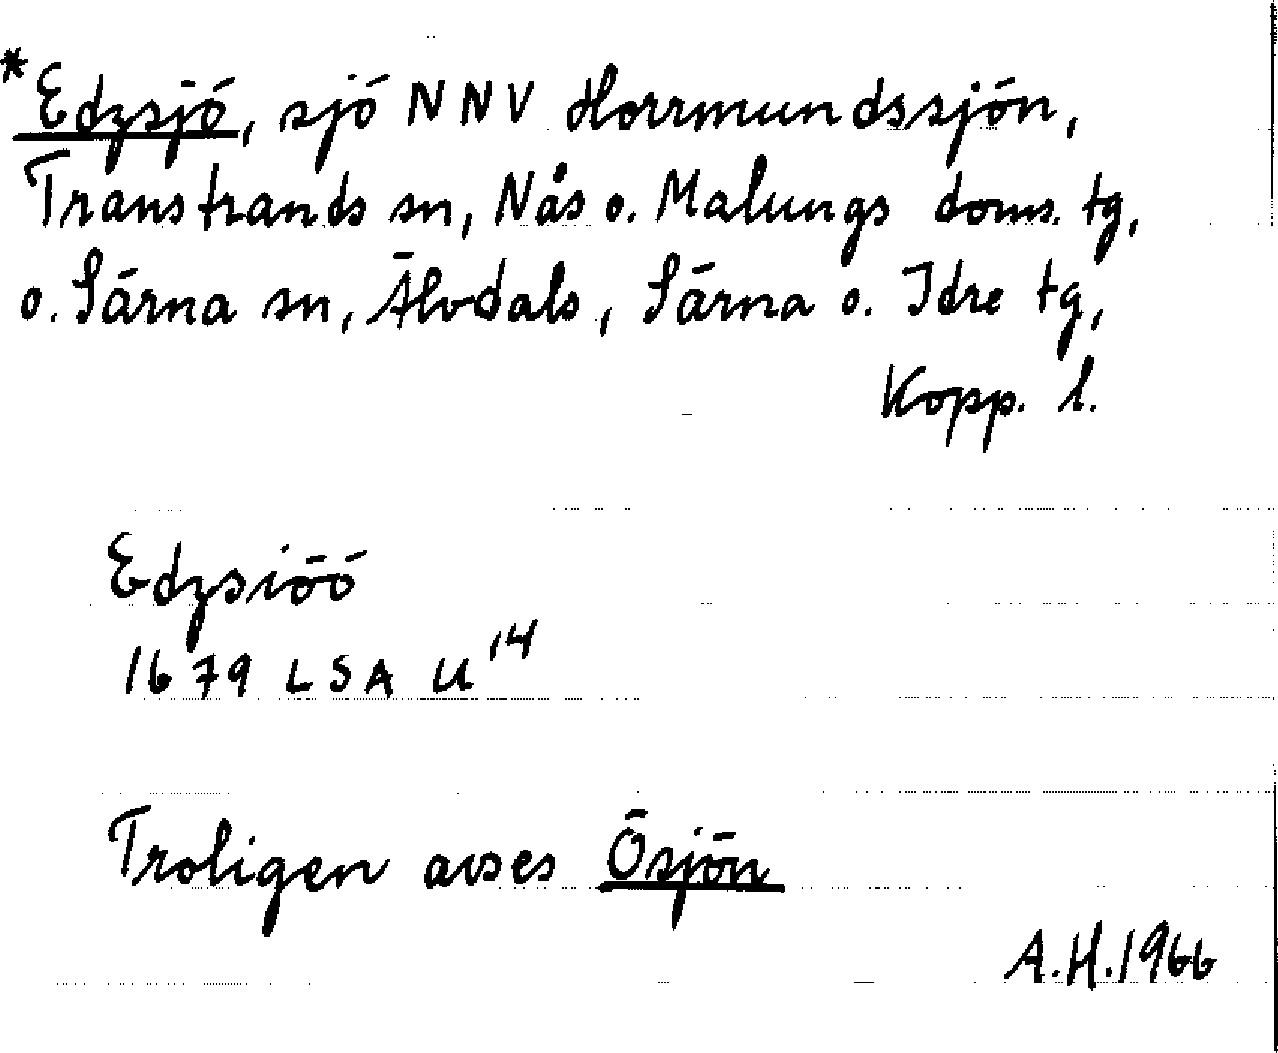 *Edzsjö, sjö NNV Horrmundssjön,
Transtrands sn, Nås o. Malungs doms. tg,
o. Särna sn, Älvdals, Särna o. Idre tg,
Kopp. l.
Edzsiöö
1679 LSA U14
Troligen avses Ösjön
A.H. 1966